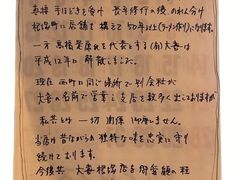 直接 手ほどきを受け 長年修行の後 のれん分け
根塚町に店舗を構えて50年以上(ラーメン作り)になります。
一方 高橋青幹氏を代表とする(有)大喜は
平成12年に解散しました。
現在 西町に同じ場所で別会社が
大喜の名前で営業し支店を数多く出しておりますが
私共とは 一切関係ございません。
当店は昔ながらの独特な味を忠実に守り
続けております。
今後共 大喜根塚店を御愛顧の程